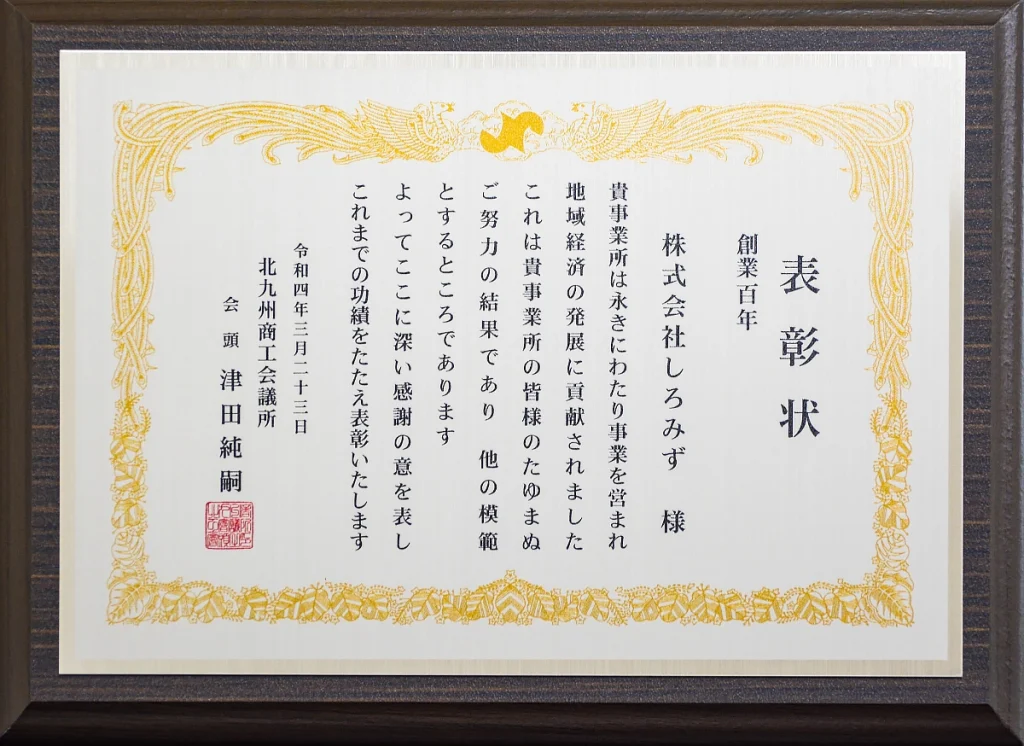 表彰状
創業百年
株式会社しろみず 様
貴事業所は永きにわたり事業を営まれ
地域経済の発展に貢献されました
これは貴事業所の皆様のたゆまぬ
ご努力の結果であり 他の模範
とするところであります
よってここに深い感謝の意を表し
これまでの功績をたたえ表彰いたします
令和四年三月二十三日
北九州商工会議所
会頭 津田純嗣